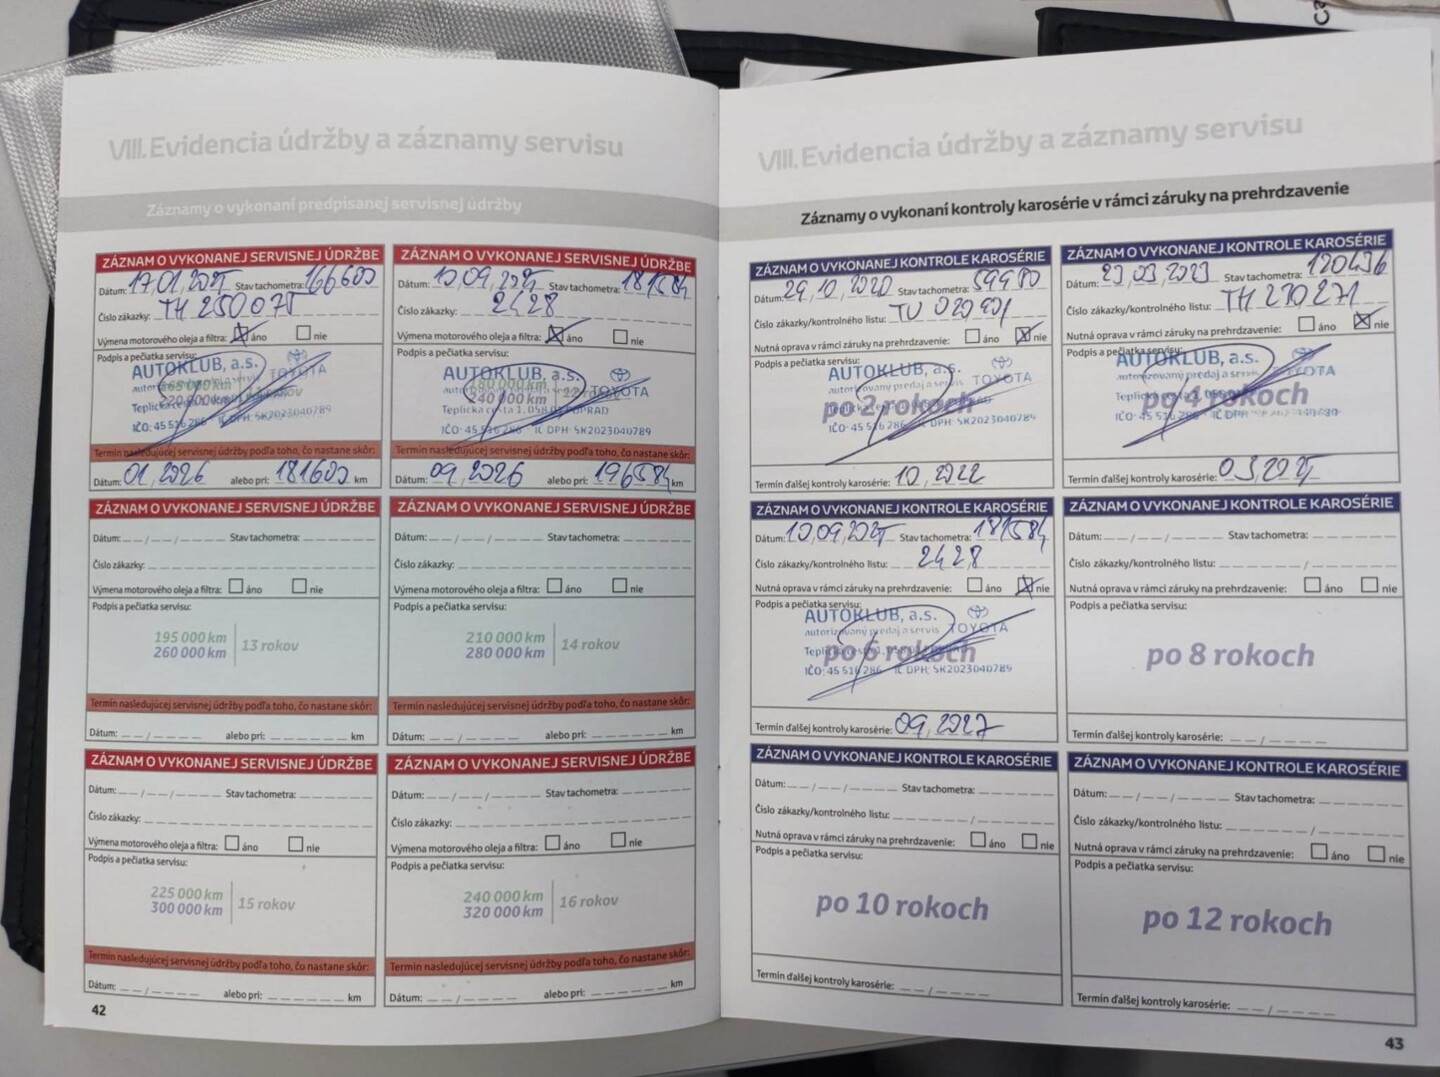 VIII. Evidencia údržby a záznamy servisu
Záznamy o vykonaní predpisanej servisnej údržby
ZÁZNAM O VYKONANEJ SERVISNEJ ÚDRŽBE
Dátum: 17.01.2025 Stav tachometra: 166600
Číslo zákazky: TH 250075
Výmena motorového oleja a filtra: áno nie
Podpis a pečiatka servisu:
AUTOKLUB, a.s.
TOYOTA
IČO: 45 516 286 IČ DPH: SK2023040789
Termín nasledujúcej servisnej údržby podľa toho, čo nastane skôr:
Dátum: 01,2026 alebo pri: 181600 km
ZÁZNAM O VYKONANEJ SERVISNEJ ÚDRŽBE
Dátum: 10,09,2025 Stav tachometra: 181584
Číslo zákazky: 2428
Výmena motorového oleja a filtra: áno nie
Podpis a pečiatka servisu:
AUTOKLUB, a.s.
180 000 km
240 000 km
TOYOTA
Teplická cesta 1, 058 01 POPRAD
IČO: 45 516 286 IČ DPH: SK2023040789
Termín nasledujúcej servisnej údržby podľa toho, čo nastane skôr:
Dátum: 09,2026 alebo pri: 196584 km
ZÁZNAM O VYKONANEJ SERVISNEJ ÚDRŽBE
Dátum: Stav tachometra:
Číslo zákazky:
Výmena motorového oleja a filtra: áno nie
Podpis a pečiatka servisu:
195 000 km
260 000 km
13 rokov
Termín nasledujúcej servisnej údržby podľa toho, čo nastane skôr:
Dátum: alebo pri: km
ZÁZNAM O VYKONANEJ SERVISNEJ ÚDRŽBE
Dátum: Stav tachometra:
Číslo zákazky:
Výmena motorového oleja a filtra: áno nie
Podpis a pečiatka servisu:
210 000 km
280 000 km
14 rokov
Termín nasledujúcej servisnej údržby podľa toho, čo nastane skôr:
Dátum: alebo pri: km
ZÁZNAM O VYKONANEJ SERVISNEJ ÚDRŽBE
Dátum: Stav tachometra:
Číslo zákazky:
Výmena motorového oleja a filtra: áno nie
Podpis a pečiatka servisu:
225 000 km
300 000 km
15 rokov
Termín nasledujúcej servisnej údržby podľa toho, čo nastane skôr:
Dátum: alebo pri: km
ZÁZNAM O VYKONANEJ SERVISNEJ ÚDRŽBE
Dátum: Stav tachometra:
Číslo zákazky:
Výmena motorového oleja a filtra: áno nie
Podpis a pečiatka servisu:
240 000 km
320 000 km
16 rokov
Termín nasledujúcej servisnej údržby podľa toho, čo nastane skôr:
Dátum: alebo pri: km
42
VIII. Evidencia údržby a záznamy servisu
Záznamy o vykonaní kontroly karosérie v rámci záruky na prehrdzavenie
ZÁZNAM O VYKONANEJ KONTROLE KAROSÉRIE
Dátum: 29,10,2020 Stav tachometra: 59980
Číslo zákazky/kontrolného listu: TU 020931
Nutná oprava v rámci záruky na prehrdzavenie: áno nie
Podpis a pečiatka servisu:
AUTOKLUB, a.s.
autorizovaný predaj a servis TOYOTA
po 2 rokoch
IČO: 45 516 286 IČ DPH: SK2023040789
Termín ďalšej kontroly karosérie: 10,2022
ZÁZNAM O VYKONANEJ KONTROLE KAROSÉRIE
Dátum: 23 03,2023 Stav tachometra: 120436
Číslo zákazky/kontrolného listu: TH 230271
Nutná oprava v rámci záruky na prehrdzavenie: áno nie
Podpis a pečiatka servisu:
AUTOKLUB, a.s.
autorizovaný predaj a servis TOYOTA
po 4 rokoch
IČO: 45 516 286 IČ DPH: SK2023040789
Termín ďalšej kontroly karosérie: 03,2025
ZÁZNAM O VYKONANEJ KONTROLE KAROSÉRIE
Dátum: 10,09,2025 Stav tachometra: 181584
Číslo zákazky/kontrolného listu: 2428
Nutná oprava v rámci záruky na prehrdzavenie: áno nie
Podpis a pečiatka servisu:
AUTOKLUB, a.s.
autorizovaný predaj a servis TOYOTA
po 6 rokoch
IČO: 45 516 286 IČ DPH: SK2023040789
Termín ďalšej kontroly karosérie: 09,2027
ZÁZNAM O VYKONANEJ KONTROLE KAROSÉRIE
Dátum: Stav tachometra:
Číslo zákazky/kontrolného listu:
Nutná oprava v rámci záruky na prehrdzavenie: áno nie
Podpis a pečiatka servisu:
po 8 rokoch
Termín ďalšej kontroly karosérie:
ZÁZNAM O VYKONANEJ KONTROLE KAROSÉRIE
Dátum: Stav tachometra:
Číslo zákazky/kontrolného listu:
Nutná oprava v rámci záruky na prehrdzavenie: áno nie
Podpis a pečiatka servisu:
po 10 rokoch
Termín ďalšej kontroly karosérie:
ZÁZNAM O VYKONANEJ KONTROLE KAROSÉRIE
Dátum: Stav tachometra:
Číslo zákazky/kontrolného listu:
Nutná oprava v rámci záruky na prehrdzavenie: áno nie
Podpis a pečiatka servisu:
po 12 rokoch
Termín ďalšej kontroly karosérie:
43